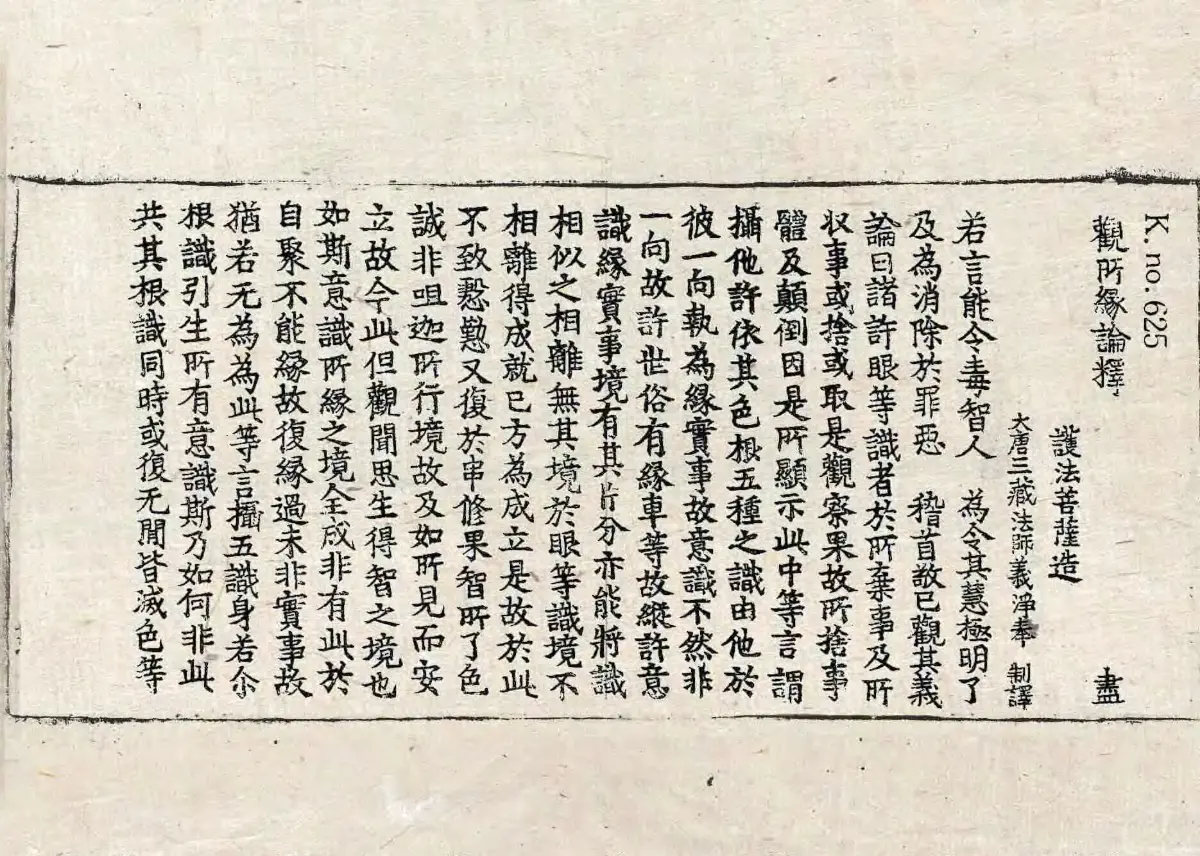 K. no. 625
觀所緣論釋 盡
護法菩薩造
大唐三藏法師義淨奉 制譯
若言能令毒智人 為令其慧極明了
及為消除於罪惡 稽首敬已觀其義
論曰諸許眼等識者於所棄事及所
収事或捨或取是觀察果故所捨事
體及顛倒因是所顯示此中等言謂
攝他許依其色根五種之識由他於
彼一向執為緣實事故意識不然非
一向故許世俗有緣車等故縱許意
識緣實事境有其片分亦能將識
相似之相離無其境於眼等識境不
相離得成就已方為成立是故於此
不致慇懃又復於串修果智所了色
誠非呾迦所行境故及如所見而安
立故今此但觀聞思生得智之境也
如斯意識所緣之境全成非有此於
自聚不能緣故復緣過未非實事故
猶若无為為此等言攝五識身若尒
根識引生所有意識斯乃如何非此
共其根識同時或復无間皆滅色等